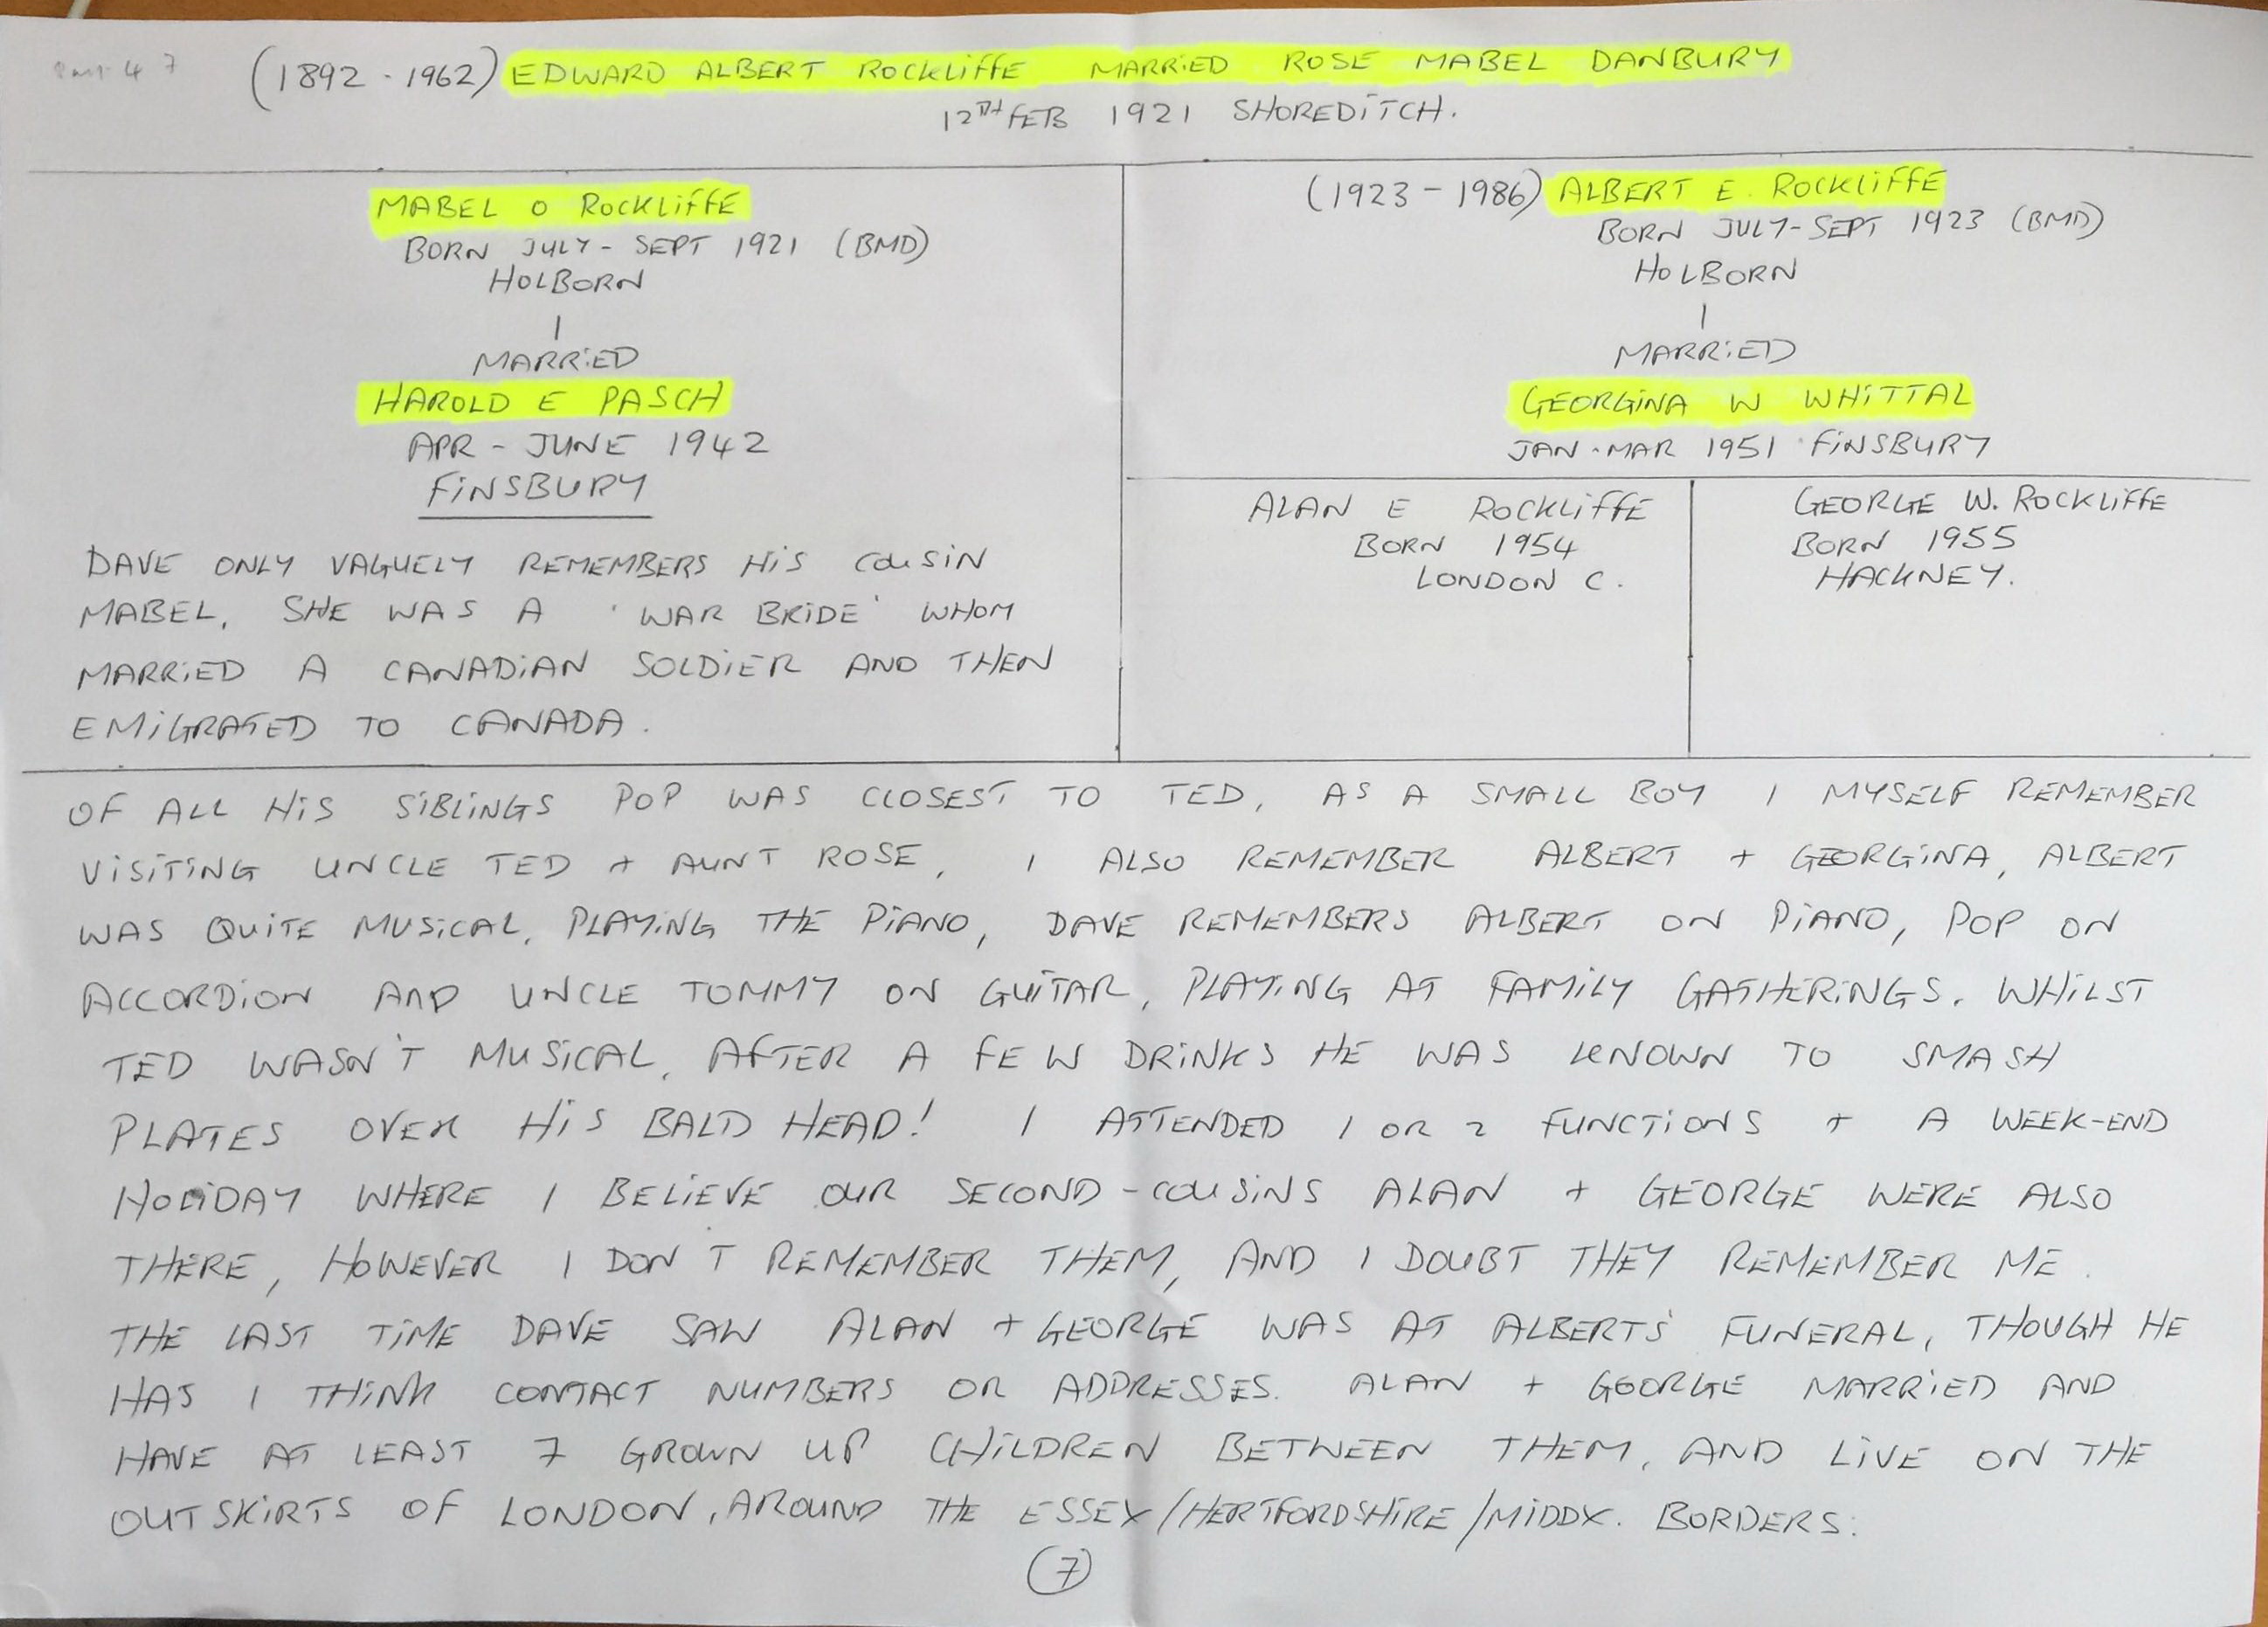 (1892 - 1962) EDWARD ALBERT ROCKLIFFE MARRIED ROSE MABEL DANBURY
12TH FEB 1921 SHOREDITCH.
MABEL O ROCKLIFFE
BORN JULY - SEPT 1921 (BMD)
HOLBORN
MARRIED
HAROLD E PASCH
APR - JUNE 1942
FINSBURY
DAVE ONLY VAGUELY REMEMBERS HIS COUSIN
MABEL, SHE WAS A 'WAR BRIDE' WHOM
MARRIED A CANADIAN SOLDIER AND THEN
EMIGRATED TO CANADA.
(1923 - 1986) ALBERT E. ROCKLIFFE
BORN JULY-SEPT 1923 (BMD)
HOLBORN
MARRIED
GEORGINA W WHITTAL
JAN - MAR 1951 FINSBURY
ALAN E ROCKLIFFE
BORN 1954
LONDON C.
GEORGE W. ROCKLIFFE
BORN 1955
HACKNEY.
OF ALL HIS SIBLINGS POP WAS CLOSEST TO TED, AS A SMALL BOY I MYSELF REMEMBER
VISITING UNCLE TED + AUNT ROSE, I ALSO REMEMBER ALBERT + GEORGINA, ALBERT
WAS QUITE MUSICAL, PLAYING THE PIANO, DAVE REMEMBERS ALBERT ON PIANO, POP ON
ACCORDION AND UNCLE TOMMY ON GUITAR, PLAYING AT FAMILY GATHERINGS. WHILST
TED WASN'T MUSICAL, AFTER A FEW DRINKS HE WAS KNOWN TO SMASH
PLATES OVER HIS BALD HEAD! I ATTENDED 1 OR 2 FUNCTIONS + A WEEK-END
HOLIDAY WHERE I BELIEVE OUR SECOND-COUSINS ALAN + GEORGE WERE ALSO
THERE, HOWEVER I DON'T REMEMBER THEM, AND I DOUBT THEY REMEMBER ME.
THE LAST TIME DAVE SAW ALAN + GEORGE WAS AT ALBERTS' FUNERAL, THOUGH HE
HAS I THINK CONTACT NUMBERS OR ADDRESSES. ALAN + GEORGE MARRIED AND
HAVE AT LEAST 7 GROWN UP CHILDREN BETWEEN THEM, AND LIVE ON THE
OUTSKIRTS OF LONDON, AROUND THE ESSEX/HERTFORDSHIRE/MIDDX. BORDERS.
7